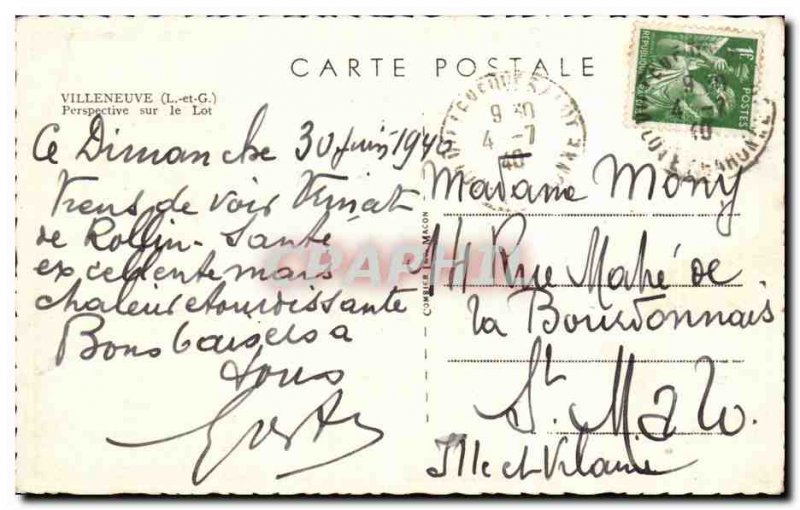 CARTE POSTALE
VILLENEUVE (L.-et-G.)
Perspective sur le Lot
Ce Dimanche 30 juin 1940
Viens de voir
de Rollin - Santé
excellente mais
chaleur étourdissante
Bons baisers à
tous
COMBIER IMP. MACON
Madame Mony
14 Rue Mahé de
la Bourdonnais
St. Malo.
Ille et Vilaine
9 30
4 -7
40
1F
POSTES
9 30
4 -7
40